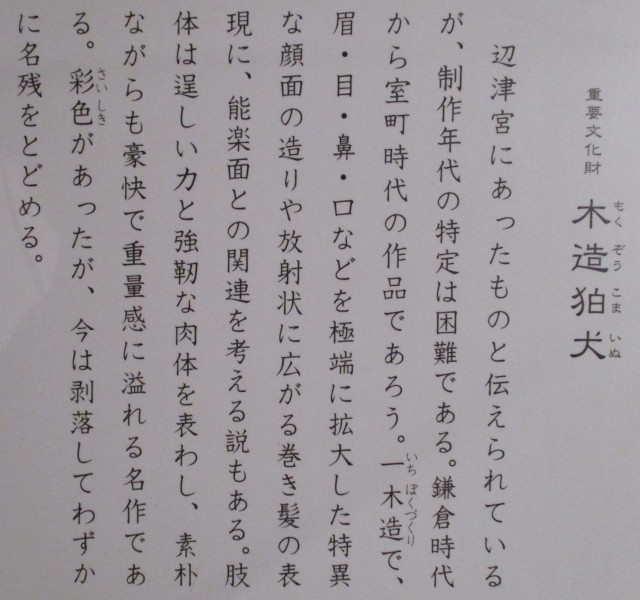 重要文化財
木造狛犬
もくぞうこまいぬ
辺津宮にあったものと伝えられている
が、制作年代の特定は困難である。鎌倉時代
から室町時代の作品であろう。一木造で、
いちぼくづくり
眉・目・鼻・口などを極端に拡大した特異
な顔面の造りや放射状に広がる巻き髪の表
現に、能楽面との関連を考える説もある。肢
体は逞しい力と強靭な肉体を表わし、素朴
ながらも豪快で重量感に溢れる名作であ
る。彩色があったが、今は剥落してわずか
さいしき
に名残をとどめる。